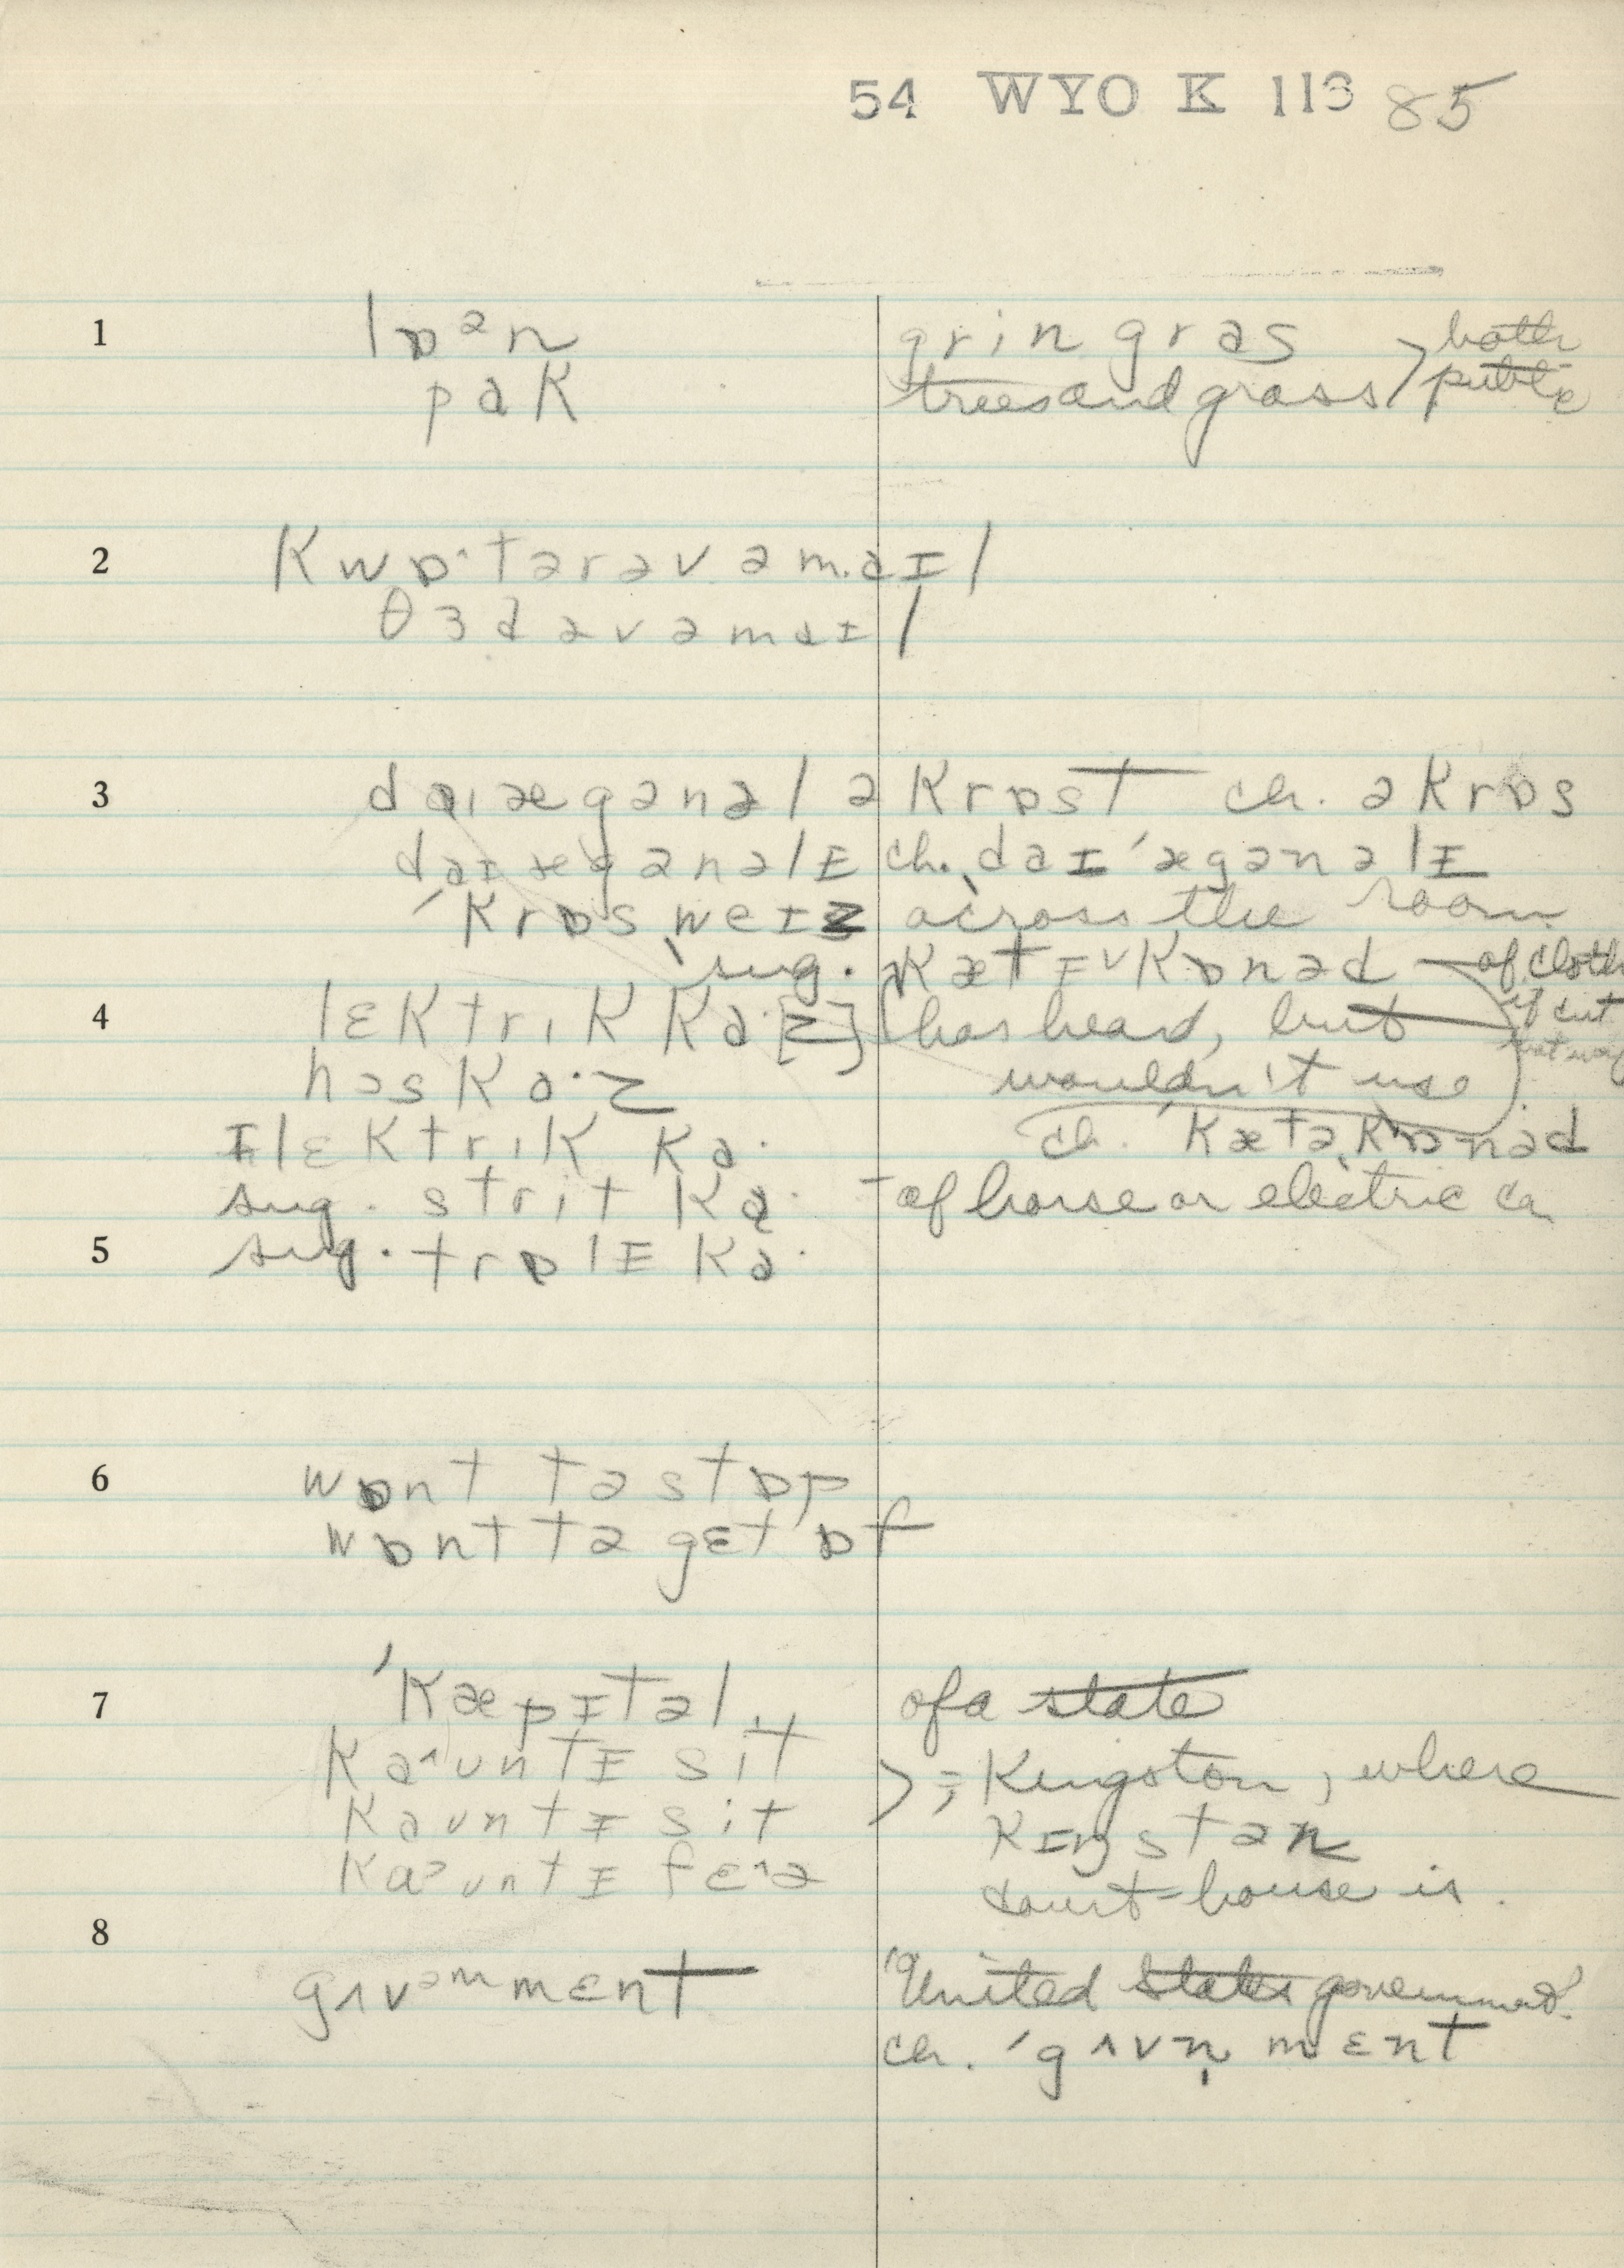 54 WYO K 113 85
1 lɒᵊn grin gras both
pak trees and grass public
2 kwɒ˄tərəvəmaɪl
θɜdəvəmaɪl
3 daɪægənəl əkrɒst ch. əkrɒs
daɪægənəlɪ ch. daɪ'ægənəlɪ
'krɒsˌweɪz across the room
sug. kætɪˈkɒnəd — of cloth
if cut
4 lɛktrik ka·[z] (has heard, but
hɔska·z wouldn't use)
ɪlɛktrik ka· ch. 'kætəˌkɒnəd
sug. strit ka· - of horse or electric ca
5 sug. trɒlɪ ka·
6 wɒnt tə stɒp
wɒnt tə gɛt ɒf
7 'kæpɪtəl of a state
ka˄ʊntɪ sit ; Kingston, where
kaʊntɪ sit kɪŋstən
kaᵊʊntɪ fɛ˄ə court-house is.
8 gʌvᵊmmɛnt "United States government"
ch. 'gʌvn̩mɛnt